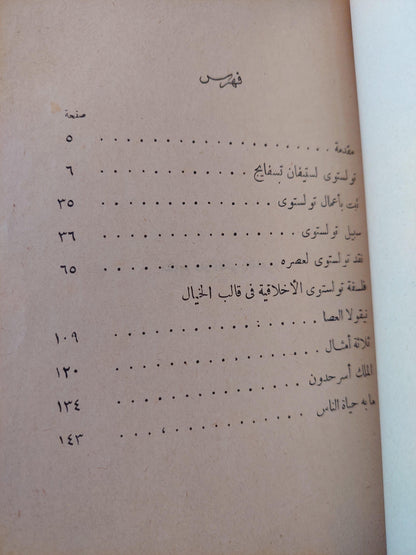 فهرس
صفحة
مقدمة . . . . . . . . . . . . . . . . . . ٥
تولستوى لستيفان تسفايج . . . . . . . . . . . ٦
ثبت بأعمال تولستوى . . . . . . . . . . . . ٣٥
سبيل تولستوى . . . . . . . . . . . . . . ٣٦
نقد تولستوى لعصره . . . . . . . . . . . . ٦٥
فلسفة تولستوى الأخلاقية فى قالب الخيال
نيقولا العصا . . . . . . . . . . . . . . ١٠٩
ثلاثة أمثال . . . . . . . . . . . . . . ١٢٠
الملك أسرحدون . . . . . . . . . . . . . ١٣٤
ما به حياة الناس . . . . . . . . . . . . ١٤٣